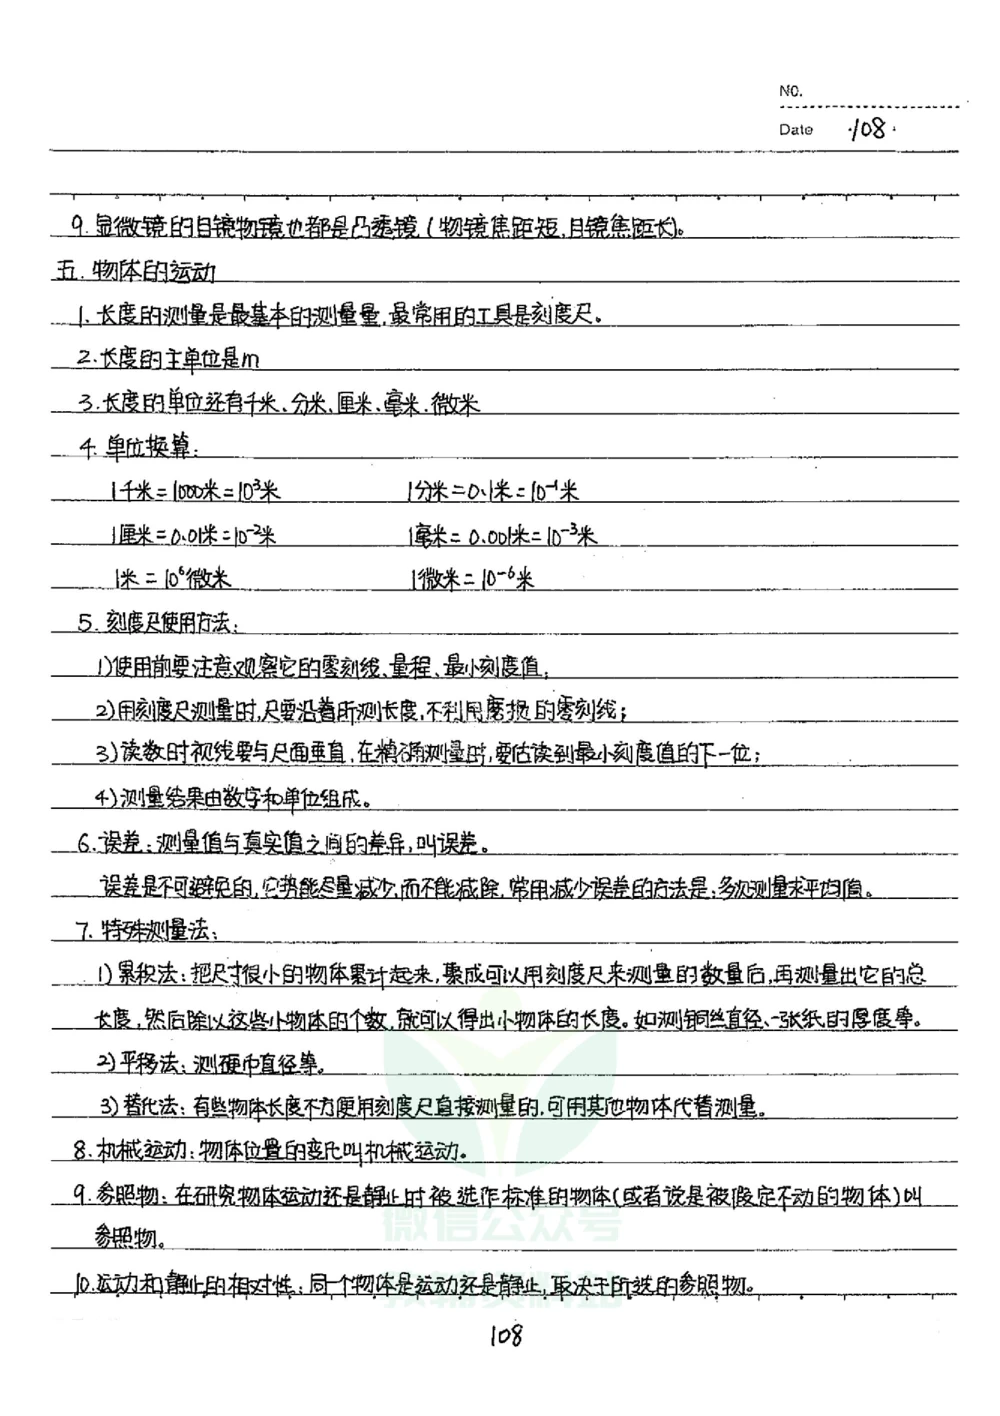 NO.
Date ·108·
9. 显微镜的目镜物镜也都是凸透镜(物镜焦距短,目镜焦距长)。
五. 物体的运动
1. 长度的测量是最基本的测量量,最常用的工具是刻度尺。
2. 长度的主单位是m
3. 长度的单位还有千米、分米、厘米、毫米、微米
4. 单位换算:
1千米=1000米=10³米 1分米=0.1米=10⁻¹米
1厘米=0.01米=10⁻²米 1毫米=0.001米=10⁻³米
1米=10⁶微米 1微米=10⁻⁶米
5. 刻度尺使用方法:
1)使用前要注意观察它的零刻线、量程、最小刻度值;
2)用刻度尺测量时,尺要沿着所测长度,不利用磨损的零刻线;
3)读数时视线要与尺面垂直,在精确测量时,要估读到最小刻度值的下一位;
4)测量结果由数字和单位组成。
6. 误差:测量值与真实值之间的差异,叫误差。
误差是不可避免的,它只能尽量减少,而不能减除,常用减少误差的方法是:多次测量求平均值。
7. 特殊测量法:
1)累积法:把尺寸很小的物体累计起来,聚成可以用刻度尺来测量的数量后,再测量出它的总
长度,然后除以这些小物体的个数,就可以得出小物体的长度。如测铜丝直径、一张纸的厚度等。
2)平移法:测硬币直径等。
3)替代法:有些物体长度不方便用刻度尺直接测量的,可用其他物体代替测量。
8. 机械运动:物体位置的变化叫机械运动。
9. 参照物:在研究物体运动还是静止时被选作标准的物体(或者说是被假定不动的物体)叫
参照物。
10. 运动和静止的相对性:同一个物体是运动还是静止,取决于所选的参照物。
微信公众号
108